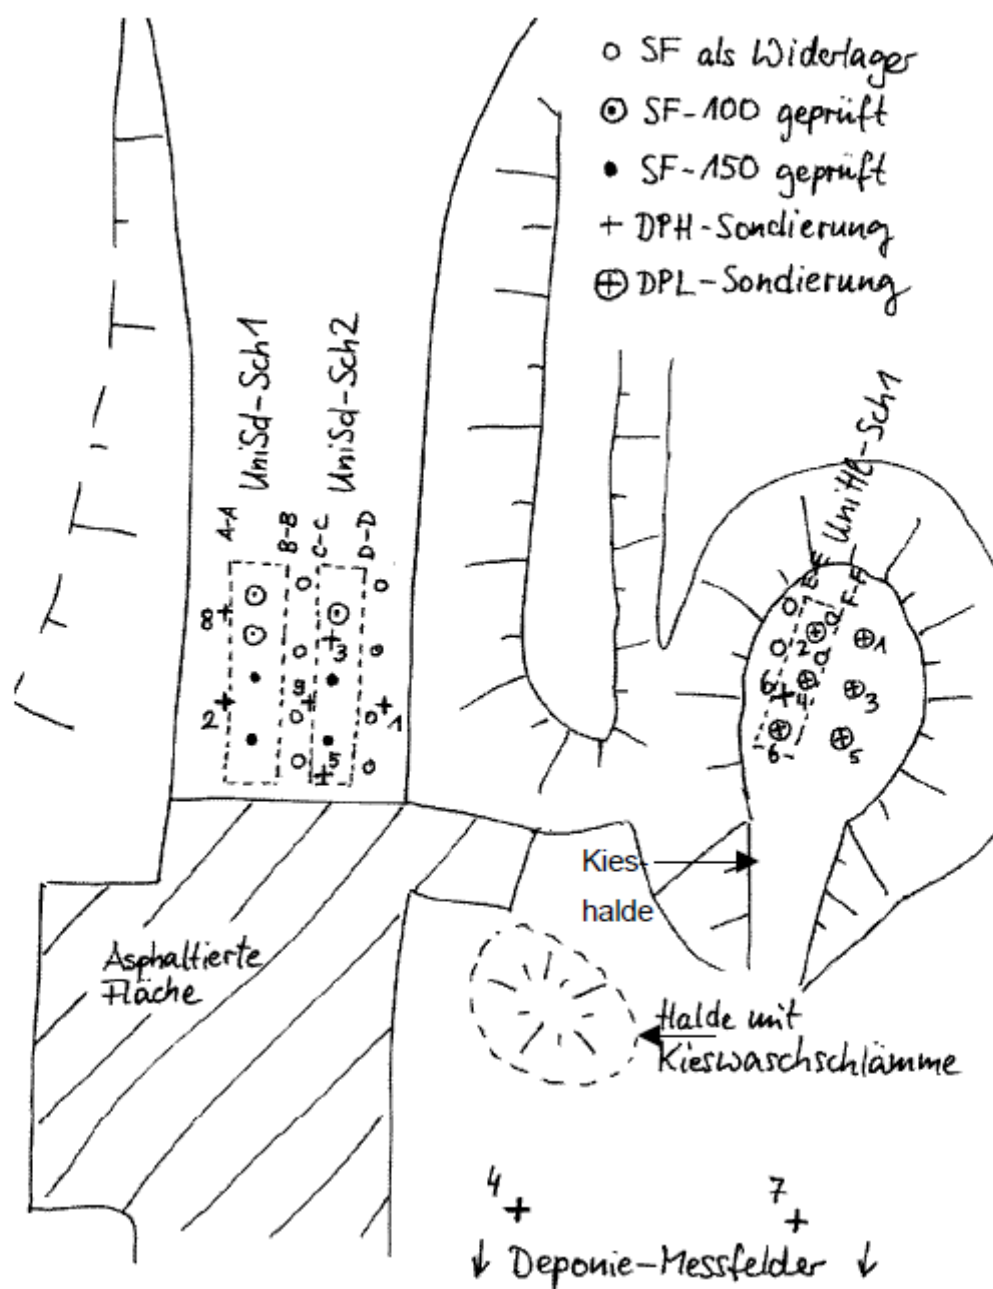 SF als Widerlager
SF-100 geprüft
SF-150 geprüft
DPH-Sondierung
DPL-Sondierung
UniSd-Sch1
UniSd-Sch2
UniHl-Sch1
A-A
B-B
C-C
D-D
E-E
F-F
8
3
2
9
1
5
2
1
6
4
3
6
5
Kies-
halde
Asphaltierte
Fläche
Halde mit
Kieswaschschlämme
4
7
↓ Deponie-Messfelder ↓